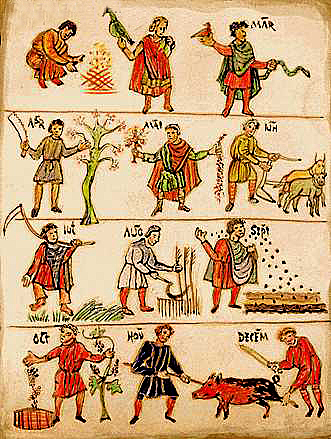 MAR
APR MAI IUN
IUL AUG SEPT
OCT NOV DECEM